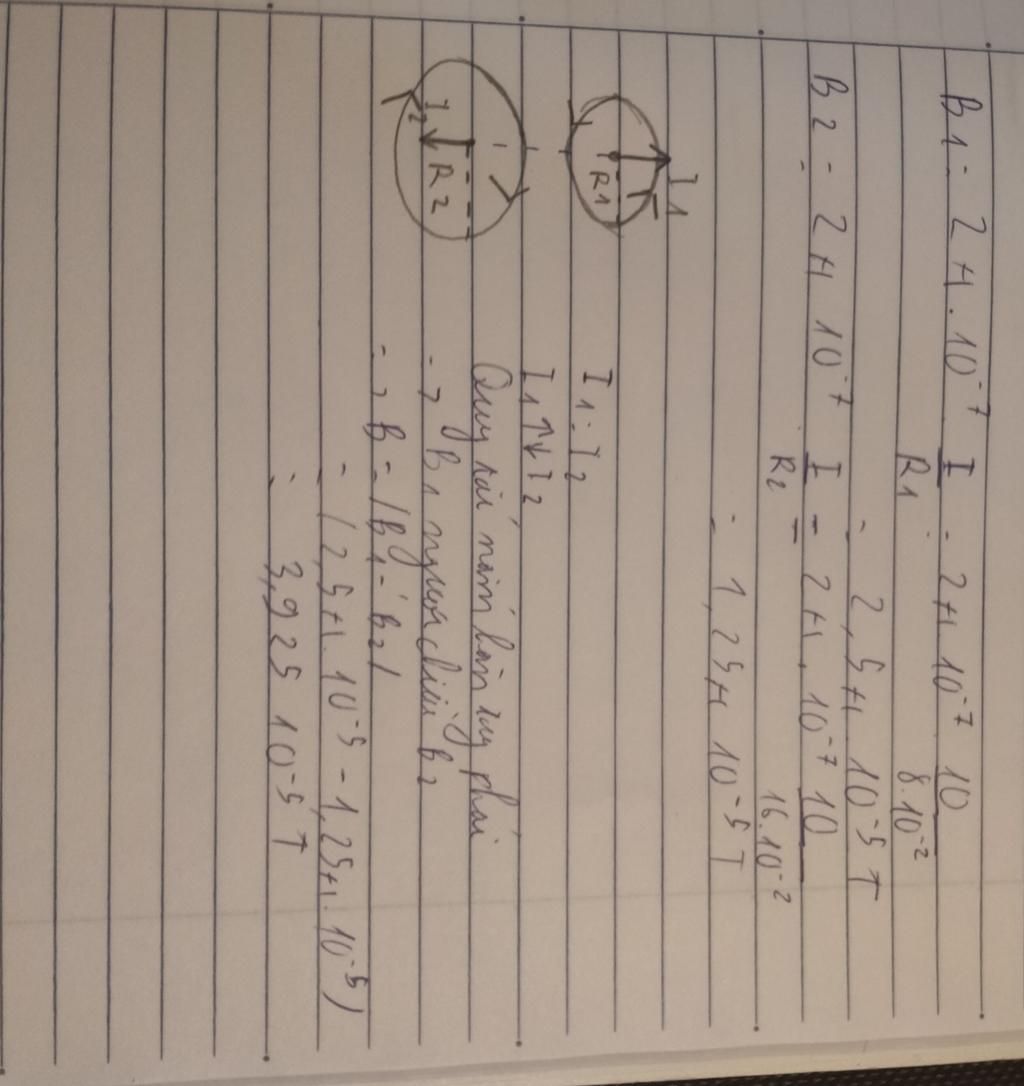 B1 = 2π.10⁻⁷ I/R1 = 2π.10⁻⁷ 10/8.10⁻²
= 2,5π.10⁻⁵ T
B2 = 2π 10⁻⁷ I/R2 = 2π.10⁻⁷ 10/16.10⁻²
= 1,25π 10⁻⁵ T
I1
R1
I1 = I2
I1 ↑↓ I2
I2
R2
Quy tắc nắm bàn tay phải
-> B1 ngược chiều B2
-> B = |B1 - B2|
= (2,5π.10⁻⁵ - 1,25π.10⁻⁵)
= 3,925 10⁻⁵ T